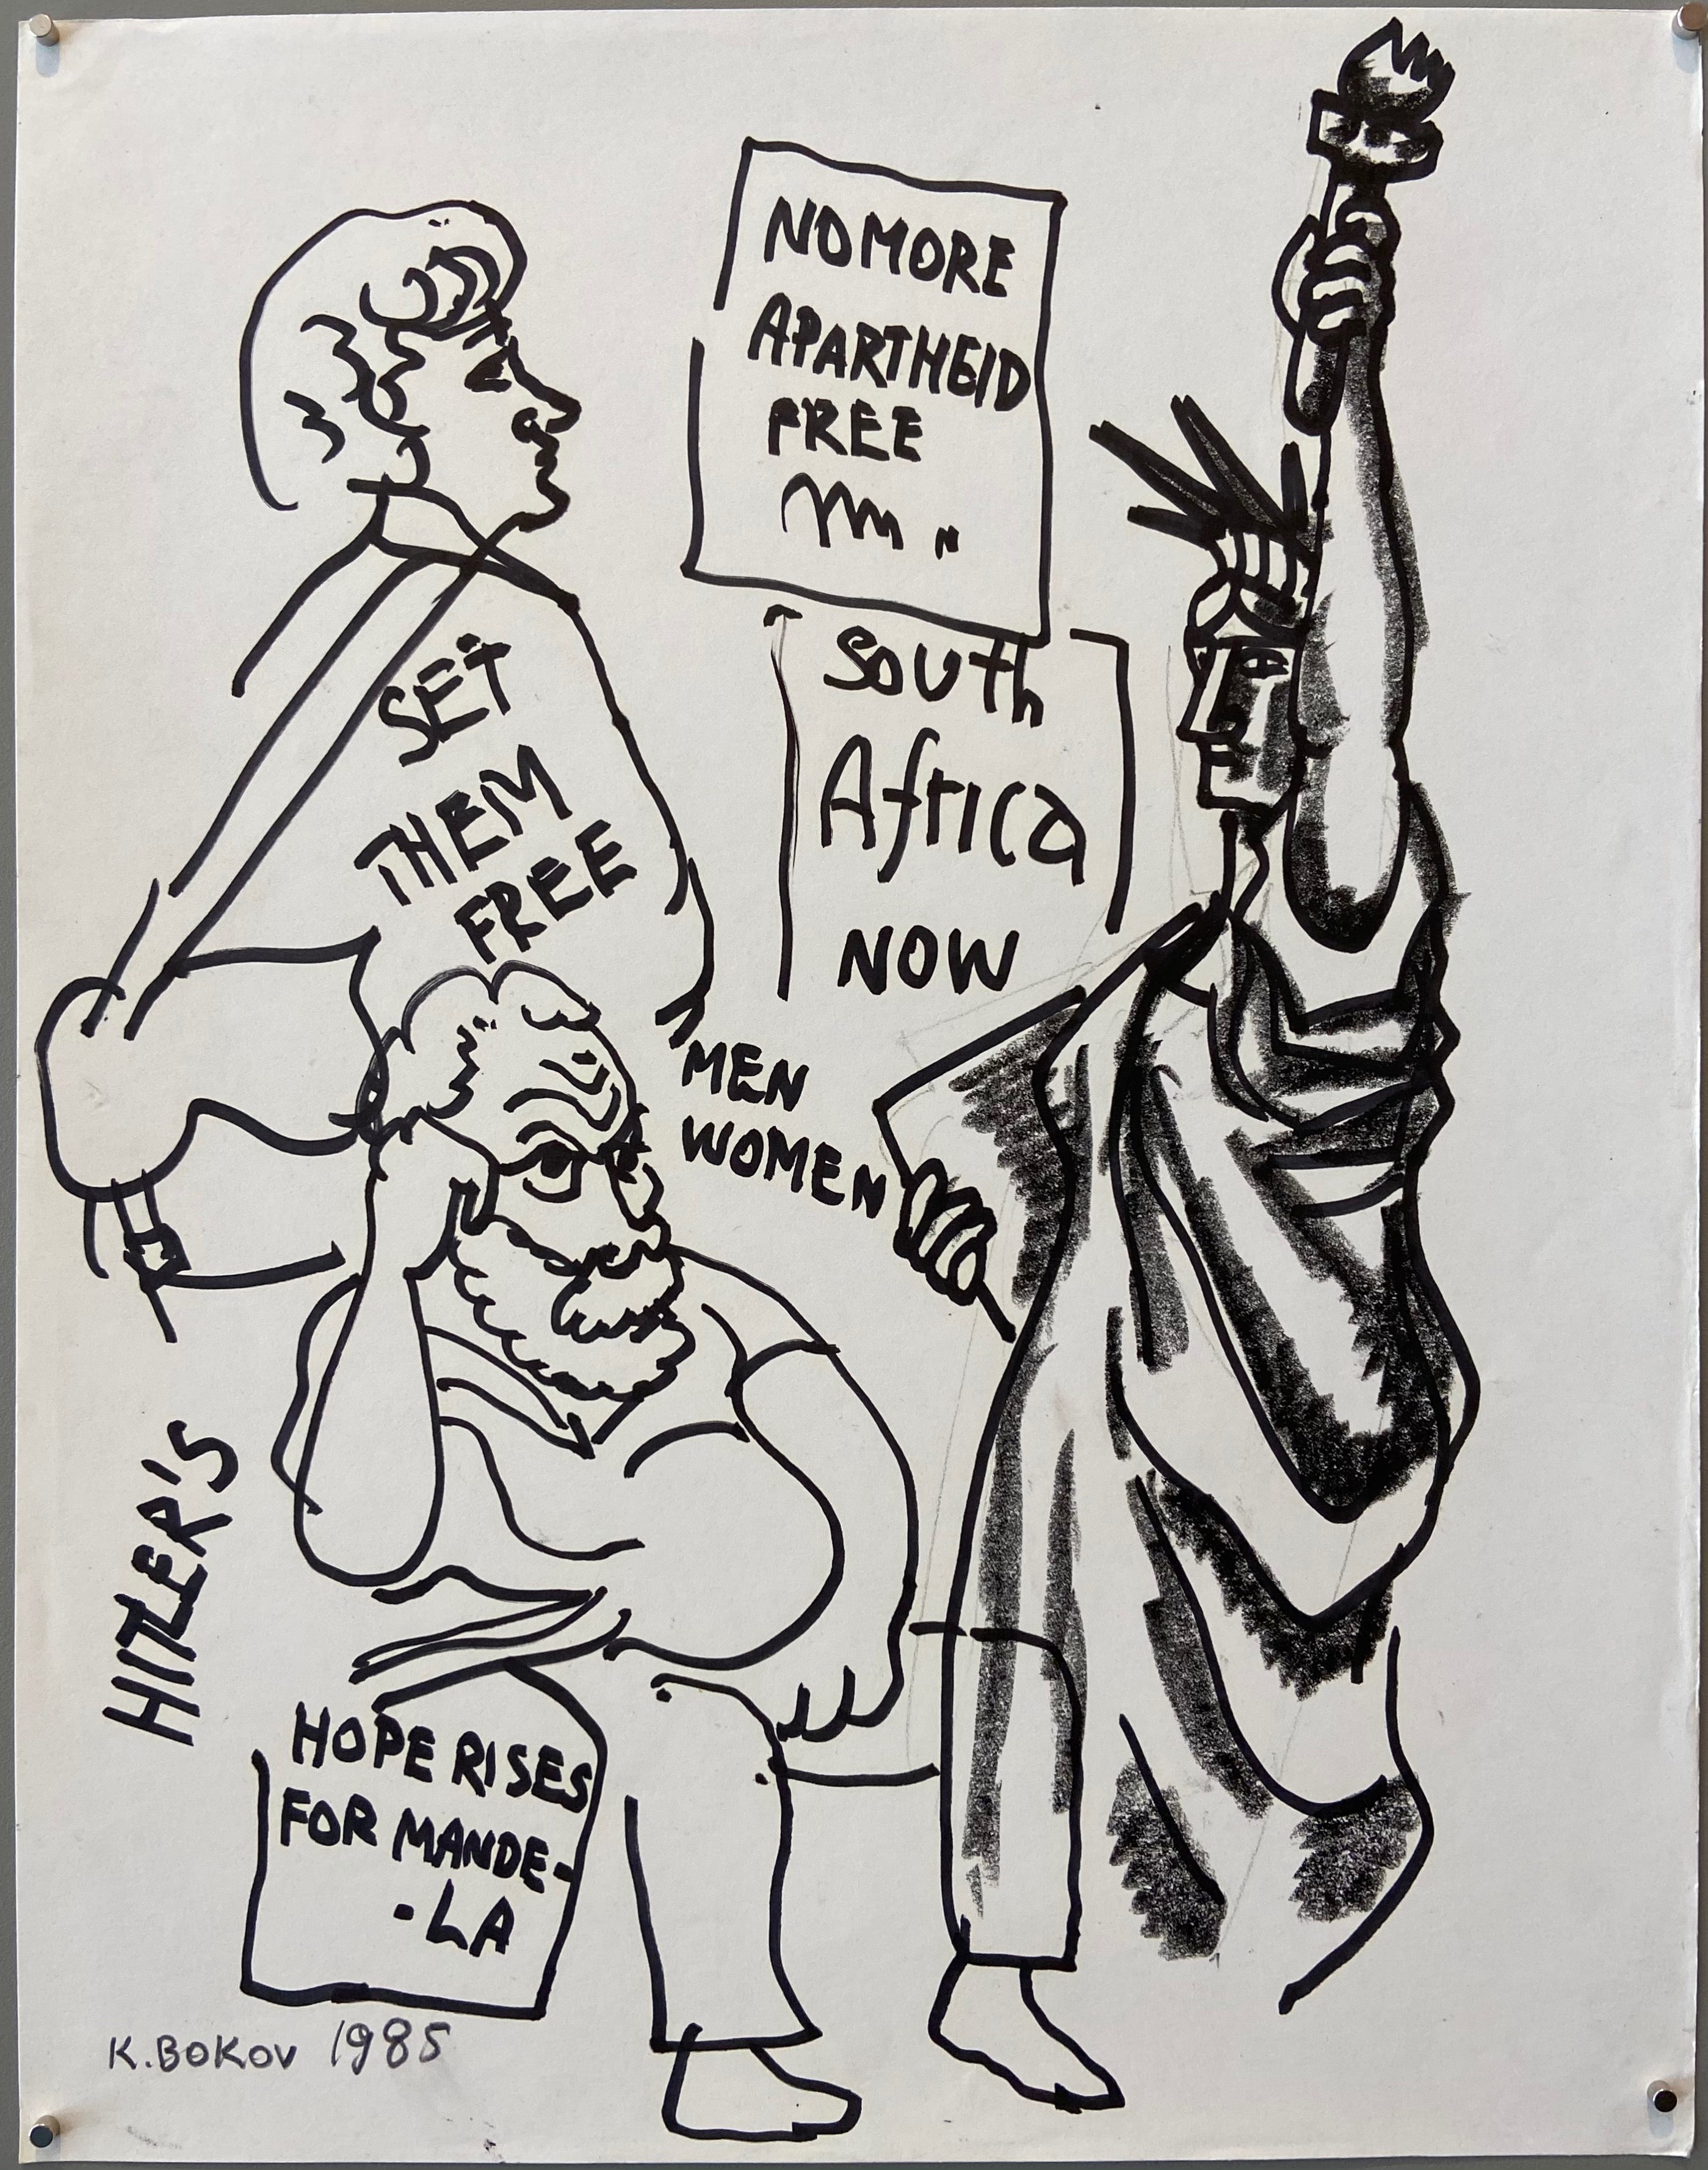 NO MORE
APARTHEID
FREE
South
Africa
NOW
SET
THEM
FREE
MEN
WOMEN
HITLER'S
HOPE RISES
FOR MANDE-
-LA
K. BOKOV 1985